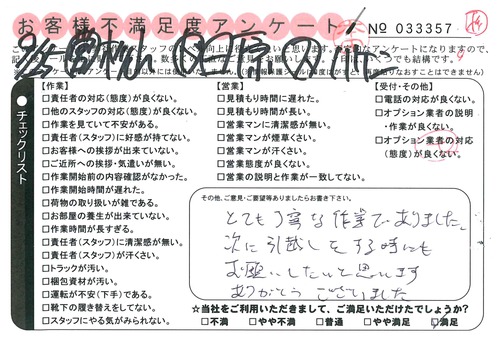 お客様不満足度アンケート
№ 033357
チェックリスト
【作業】
□責任者の対応(態度)が良くない。
□他のスタッフの対応(態度)が良くない。
□作業を見ていて不安がある。
□責任者(スタッフ)に好感が持てない。
□お客様への挨拶が出来ていない。
□ご近所への挨拶・気遣いが無い。
□作業開始前の内容確認がなかった。
□作業開始時間が遅れた。
□荷物の取り扱いが雑である。
□お部屋の養生が出来ていない。
□作業時間が長すぎる。
□責任者(スタッフ)に清潔感が無い。
□責任者(スタッフ)が汗くさい。
□トラックが汚い。
□梱包資材が汚い。
□運転が不安(下手)である。
□靴下の履き替えをしてない。
□スタッフにやる気がみられない。
【営業】
□見積もり時間に遅れた。
□見積もり時間が長い。
□営業マンに清潔感が無い。
□営業マンが煙草くさい。
□営業マンが汗くさい。
□営業態度が良くない。
□営業の説明と作業が一致してない。
【受付・その他】
□電話の対応が良くない。
□オプション業者の説明
・作業が良くない。
□オプション業者の対応
(態度)が良くない。
その他、ご意見・ご要望等ありましたらお書き下さい。
とても丁寧な作業でありました。
次に引越しをする時にも
お願いしたいと思います
ありがとうございました
☆当社をご利用いただきまして、ご満足いただけたでしょうか?
□不満 □やや不満 □普通 □やや満足 □満足